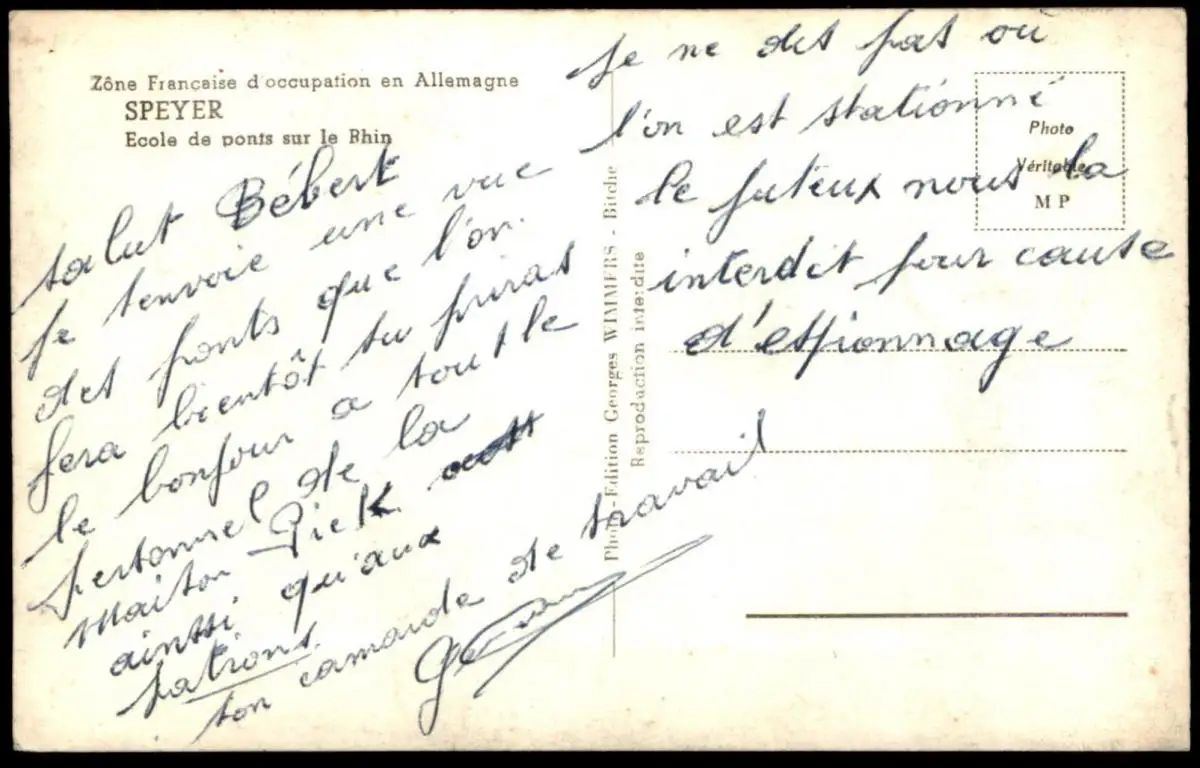 Zône Française d'occupation en Allemagne
SPEYER
Ecole de ponts sur le Rhin
salut Bébert
je tenvoie une vue
des ponts que l'on.
fera bientôt tu puras
le bonjour a tout le
personnel de la
maison
ainssi qu'aux
patrons.
ton camarde de travail
je ne dis pas ou
l'on est stationné
le futeux nous la
interdit pour cause
d'espionnage
Photo
Véritable
M P
Photo-Edition Georges WIMMERS - Bitche
Reproduction interdite